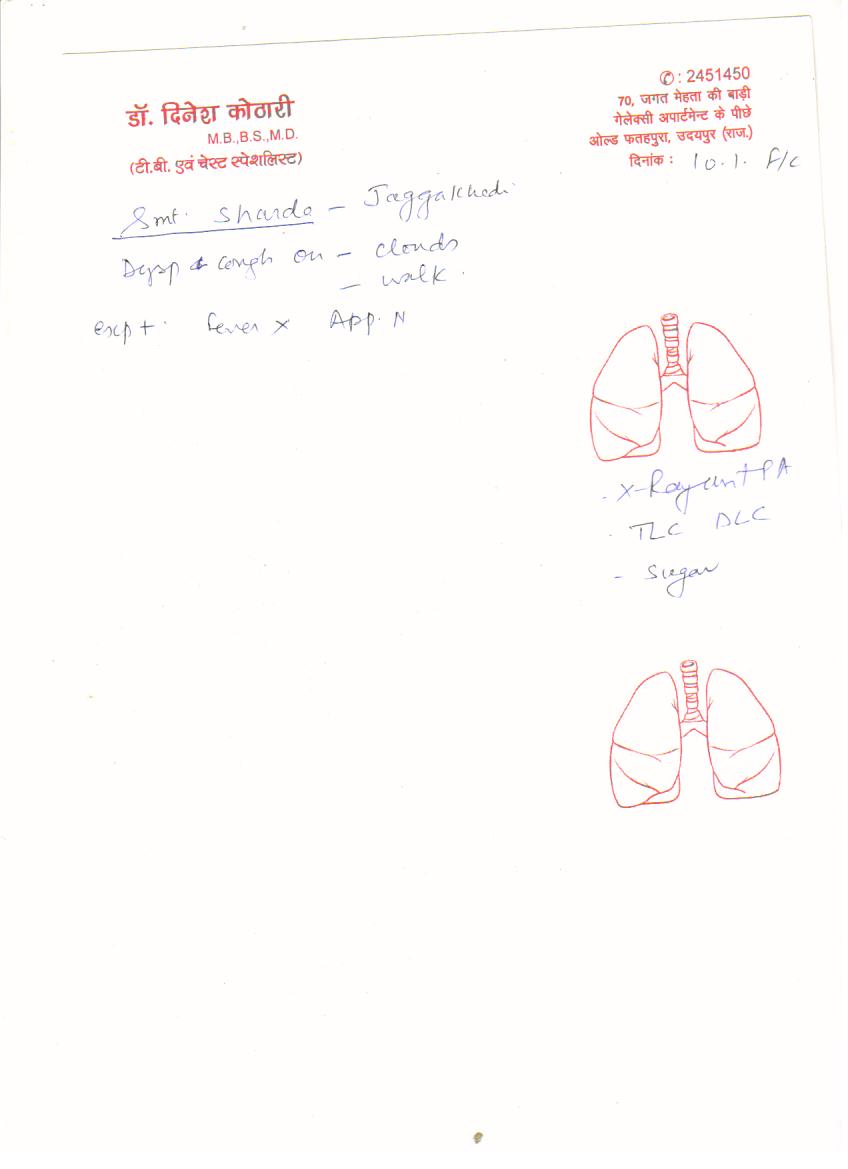 डॉ. दिनेश कोठारी
M.B.,B.S.,M.D.
(टी.बी. एवं चेस्ट स्पेशलिस्ट)
✆ : 2451450
70, जगत मेहता की बाड़ी
गेलेक्सी अपार्टमेन्ट के पीछे
ओल्ड फतहपुरा, उदयपुर (राज.)
दिनांक : 10.1. F/C
Smt. Sharda – Jaggakhedi
Dysp & cough on – clouds
– walk.
exp + . fever x App. N
- X-Ray PA
- TLC DLC
- Sugar